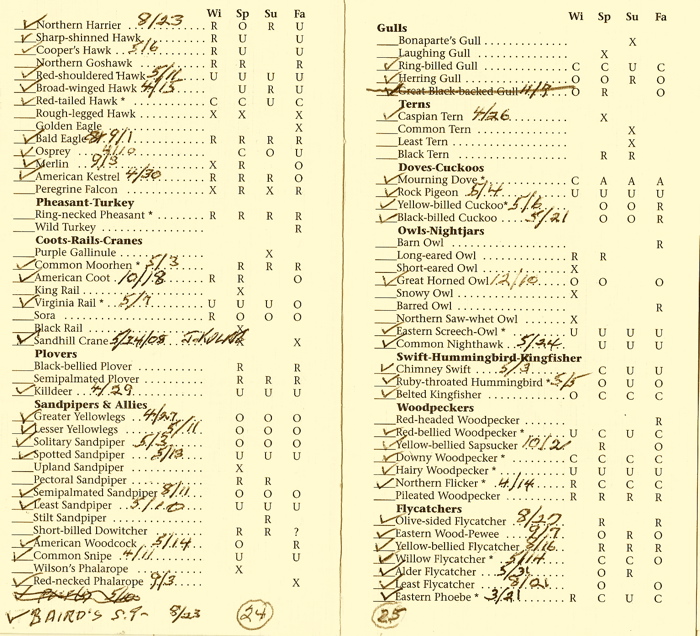 Wi Sp Su Fa
✓ Northern Harrier 8/23 R O R U
✓ Sharp-shinned Hawk R U U
✓ Cooper's Hawk 5/6 R U U
Northern Goshawk R R R
✓ Red-shouldered Hawk 5/11 U U U U
✓ Broad-winged Hawk 4/13 U R U
✓ Red-tailed Hawk * C C U C
Rough-legged Hawk X X X
Golden Eagle X
✓ Bald Eagle 9/1 R R R R
✓ Osprey C O U
✓ Merlin 9/3 X R O
✓ American Kestrel 4/30 R R R O
Peregrine Falcon X R X R
Pheasant-Turkey
Ring-necked Pheasant * R R R R
Wild Turkey R
Coots-Rails-Cranes
Purple Gallinule X
✓ Common Moorhen * 5/3 R R R
✓ American Coot 10/18 R R O
King Rail X
✓ Virginia Rail * 5/7 U U U O
Sora R O O O
Black Rail X
✓ Sandhill Crane 5/24/08 X
Plovers
Black-bellied Plover R R
Semipalmated Plover R R R
✓ Killdeer 4/29 U U U
Sandpipers & Allies
✓ Greater Yellowlegs 4/27 O O O
✓ Lesser Yellowlegs 5/11 O O O
✓ Solitary Sandpiper 5/3 O O O
✓ Spotted Sandpiper 5/13 U U U
Upland Sandpiper X
Pectoral Sandpiper R R
✓ Semipalmated Sandpiper 8/11 O O O
✓ Least Sandpiper U U U
Stilt Sandpiper R
Short-billed Dowitcher R R ?
✓ American Woodcock 5/14 O R
✓ Common Snipe 4/11 U U
Wilson's Phalarope X
✓ Red-necked Phalarope 9/3 X
✓ BAIRD'S S.P- 8/23 24
Wi Sp Su Fa
Gulls
Bonaparte's Gull X
Laughing Gull X
✓ Ring-billed Gull C C U C
✓ Herring Gull O O R O
✓ Great Black-backed Gull 4/9 O R O
Terns
✓ Caspian Tern 4/26 X
Common Tern X
Least Tern X
Black Tern R R
Doves-Cuckoos
✓ Mourning Dove * C A A A
✓ Rock Pigeon 5/4 U U U U
✓ Yellow-billed Cuckoo * 5/6 O O R
✓ Black-billed Cuckoo 5/21 O O R
Owls-Nightjars
Barn Owl R
Long-eared Owl R R
Short-eared Owl X
✓ Great Horned Owl 12/10 O O O
Snowy Owl X
Barred Owl R
Northern Saw-whet Owl X
✓ Eastern Screech-Owl * U U U U
✓ Common Nighthawk 5/24 U U U
Swift-Hummingbird-Kingfisher
✓ Chimney Swift 5/3 C U U
✓ Ruby-throated Hummingbird * 5/5 O U O
✓ Belted Kingfisher O C C C
Woodpeckers
Red-headed Woodpecker R
✓ Red-bellied Woodpecker * U C U C
✓ Yellow-bellied Sapsucker 10/2 R O
✓ Downy Woodpecker * C C C C
✓ Hairy Woodpecker * U U U U
✓ Northern Flicker * 4/14 R C C C
Pileated Woodpecker R R R R
Flycatchers
✓ Olive-sided Flycatcher 8/27 R R
✓ Eastern Wood-Pewee 9/7 O R O
✓ Yellow-bellied Flycatcher R R R
✓ Willow Flycatcher * 5/14 C C O
✓ Alder Flycatcher 5/31 O R
✓ Least Flycatcher 8/21 O O
✓ Eastern Phoebe * 3/21 R C U C
25